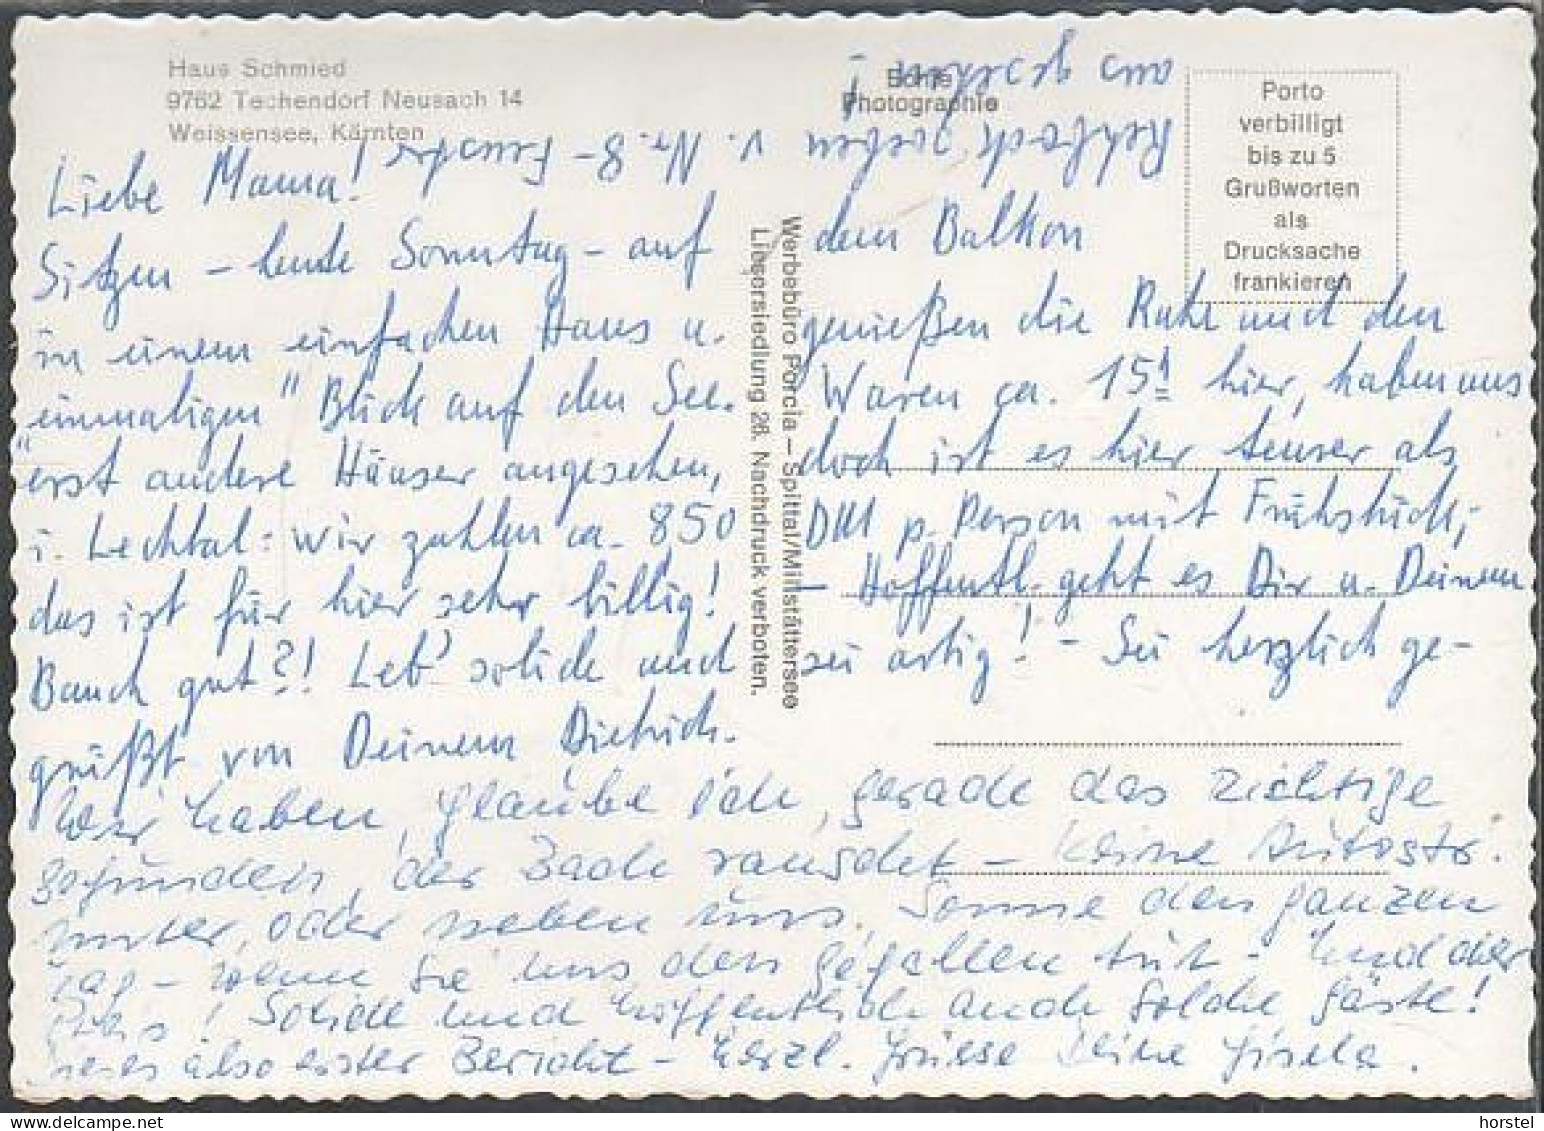 Haus Schmied
9762 Techendorf Neusach 14
Weissensee, Kärnten
Echte
Photographie
Porto
verbilligt
bis zu 5
Grußworten
als
Drucksache
frankieren
Werbebüro Porcia – Spittal/Millstättersee
Liesersiedlung 26. Nachdruck verboten.
Liebe Mama!
Sitzen – heute Sonntag – auf dem Balkon
in einem einfachen Haus u. genießen die Ruhe und den
"einmaligen" Blick auf den See. Waren ca. 15h hier, haben uns
erst andere Häuser angesehen, doch ist es hier teurer als
i. Lechtal: wir zahlen ca. 850 DM p. Person mit Frühstück,
das ist für hier sehr billig! – Hoffentl. geht es Dir u. Deinem
Bauch gut?! Leb' solide und sei artig! – Sei herzlich ge-
grüßt von Deinem Dietrich.
Wir haben, glaube ich, gerade das richtige
gefunden, der Bach rauscht – keine Autostr.
unter, oder neben uns. Sonne den ganzen
Tag – wenn sie uns den Gefallen tut – und der
Preis! Solide und hoffentlich auch solche Gäste!
also erster Bericht – herzl. Grüsse Deine Gisela.
v. Nr. 8 –